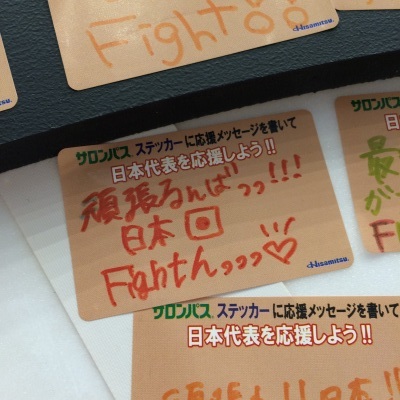 Fight
Hisamitsu.
サロンパス ステッカーに応援メッセージを書いて
日本代表を応援しよう!!
頑張るんばっっ!!!
日本
Fightんっっっ♡
Hisamitsu.
サロンパス
日
最
が
F
サロンパス ステッカーに応援メッセージを書いて
日本代表を応援しよう!!